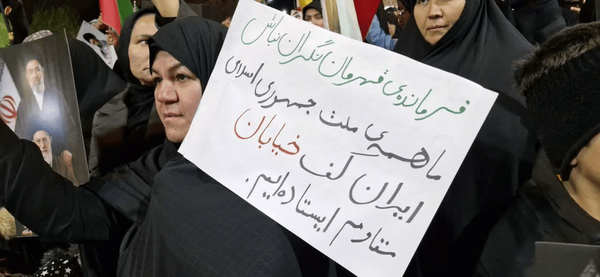 فرمانده‌ی قهرمان نگران نباش
ما همه‌ی ملت جمهوری اسلامی
ایران کف خیابان
مقاوم ایستاده‌ایم.